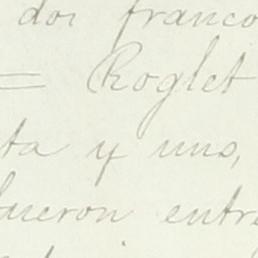 doi franco
= Roglet
ta y uno,
fueron entre